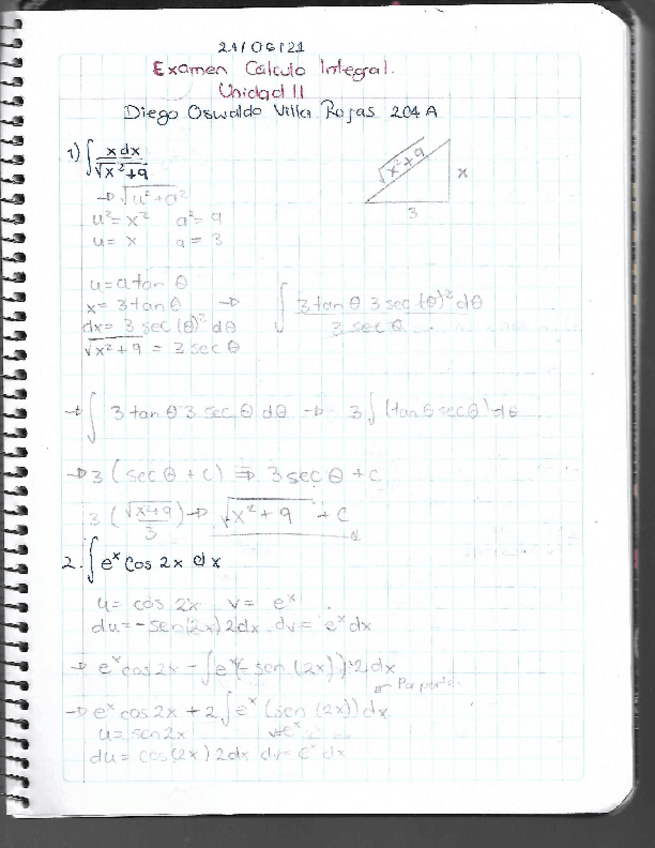 21/06/21
Examen Calculo Integral.
Unidad II
Diego Oswaldo Villa Rojas 204 A
1) ∫ x dx / √x²+9
→ √u²+a²
√x²+9
x
3
u²= x² a²= 9
u= x a= 3
u= a tan θ
x= 3 tan θ →
dx= 3 sec (θ)² dθ
√x²+9 = 3 sec θ
∫ 3 tan θ 3 sec (θ)² dθ / 3 sec θ
→ ∫ 3 tan θ 3 sec θ dθ → 3 ∫ (tan θ sec θ) dθ
→ 3 (sec θ + c) ⇒ 3 sec θ + c
3 (√x²+9 / 3) → √x²+9 + c
2. ∫ eˣ cos 2x dx
u= cos 2x v= eˣ
du= -sen(2x) 2dx dv= eˣ dx
→ eˣ cos 2x - ∫ eˣ(-sen (2x)) · 2 dx
→ eˣ cos 2x + 2 ∫ eˣ (sen (2x)) dx
u= sen 2x v=eˣ
du= cos(2x) 2dx dv= eˣ dx